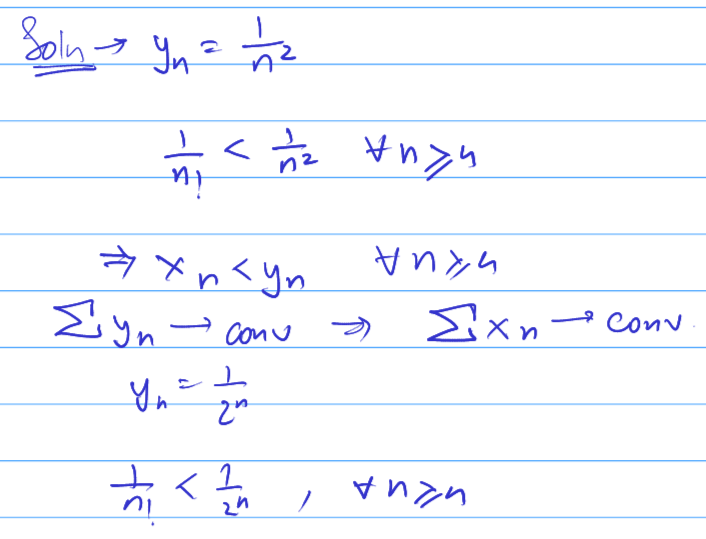 Soln → yₙ = 1/n²
1/n! < 1/n² ∀ n ⩾ 4
⇒ xₙ < yₙ ∀ n ⩾ 4
∑ yₙ → conv ⇒ ∑ xₙ → conv.
yₙ = 1/2ⁿ
1/n! < 1/2ⁿ , ∀ n ⩾ n